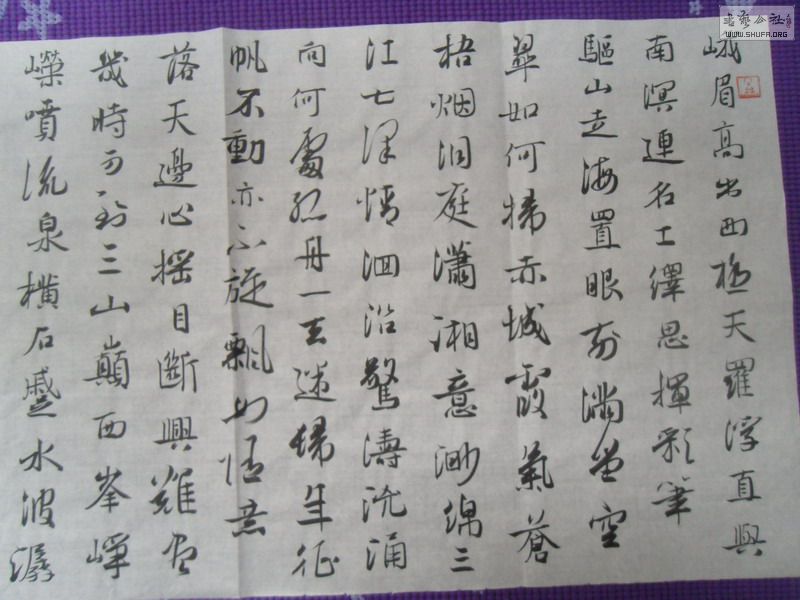 峨眉高出西極天羅浮直與
南溟連名工繹思揮彩筆
驅山走海置眼前滿堂空
翠如何掃赤城霞氣蒼
梧烟洞庭瀟湘意渺綿三
江七澤情洄沿驚濤洶涌
向何處孤舟一去迷歸年征
帆不動亦不旋飄如随風
落天邊心搖目斷興難盡
幾時可到三山巔西峯崢
嶸噴流泉橫石蹙水波潺
WWW.SHUFA.ORG